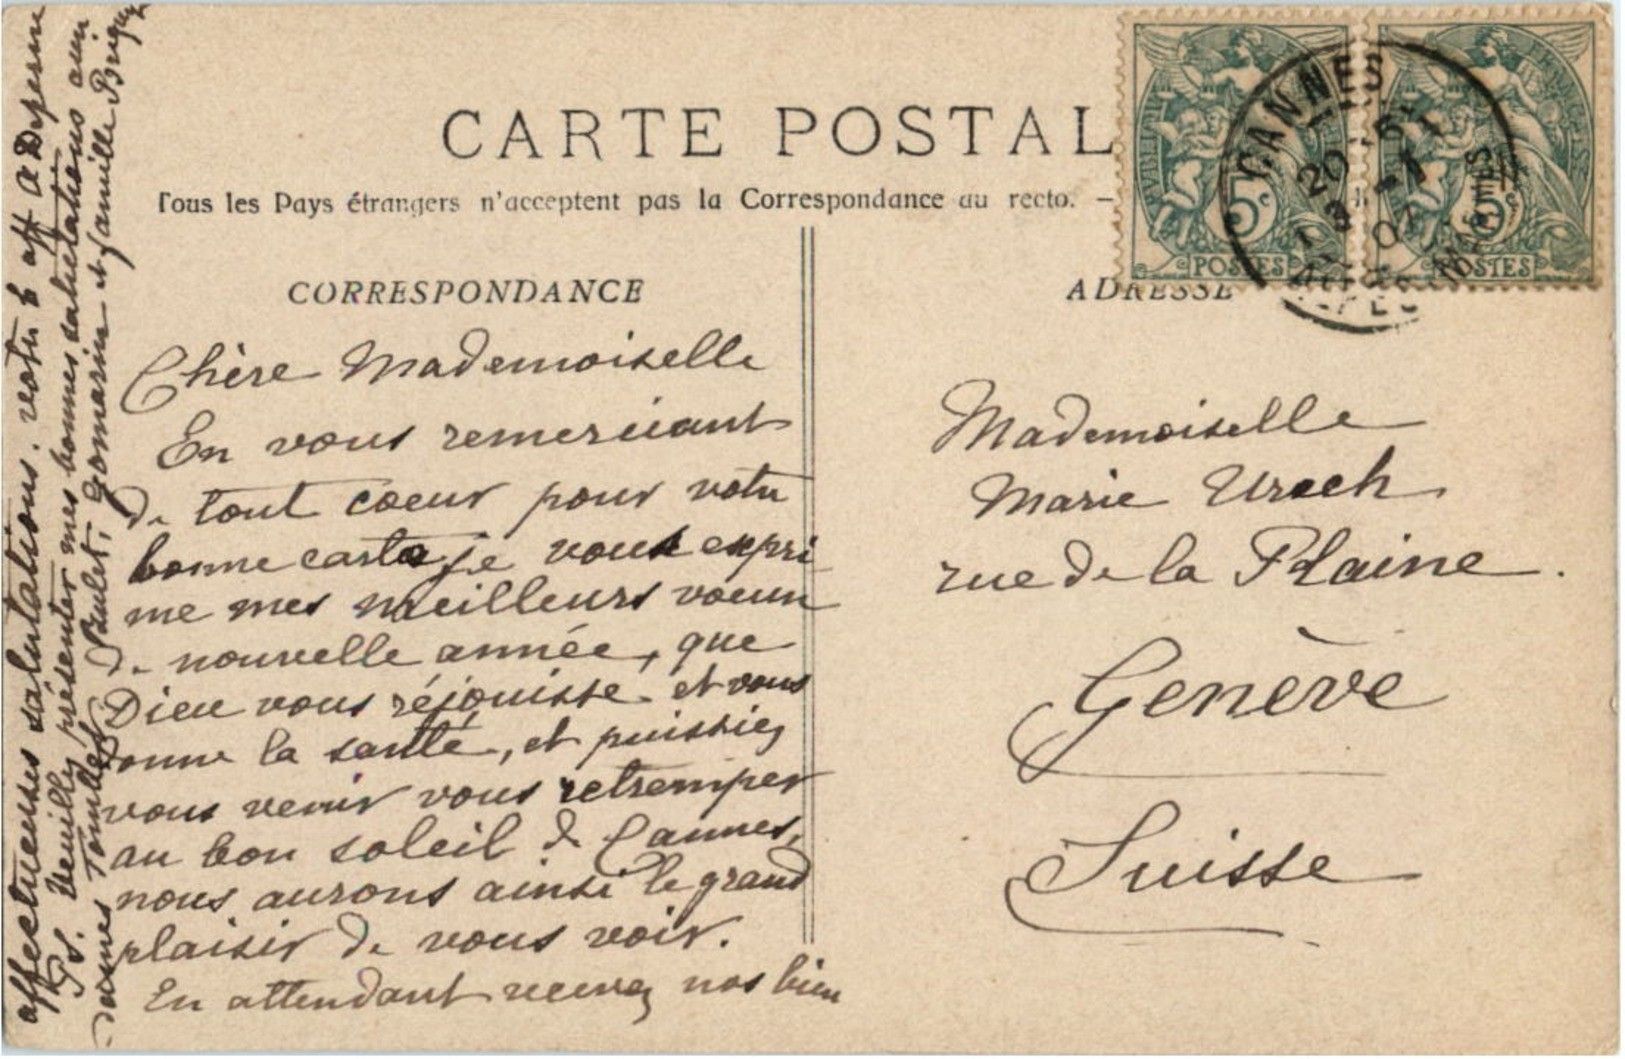 CARTE POSTAL
Tous les Pays étrangers n'acceptent pas la Correspondance au recto. —
CORRESPONDANCE
Chère Mademoiselle
En vous remerciant
de tout coeur pour votre
bonne carte je vous expri
me mes meilleurs voeux
de nouvelle année, que
Dieu vous réjouisse et vous
donne la santé, et puissiez
vous venir vous retremper
au bon soleil de Cannes,
nous aurons ainsi le grand
plaisir de vous voir.
En attendant recevez nos bien
affectueuses salutations. votre b aff
Ps. Veuillez présenter mes bonnes salutations aux
dames et famille
ADRESSE
Mademoiselle
Marie Urech
rue de la Plaine.
Genève
Suisse
5c
POSTES
5c
POSTES
CANNES
20
-1
07
ALPES MARITIMES